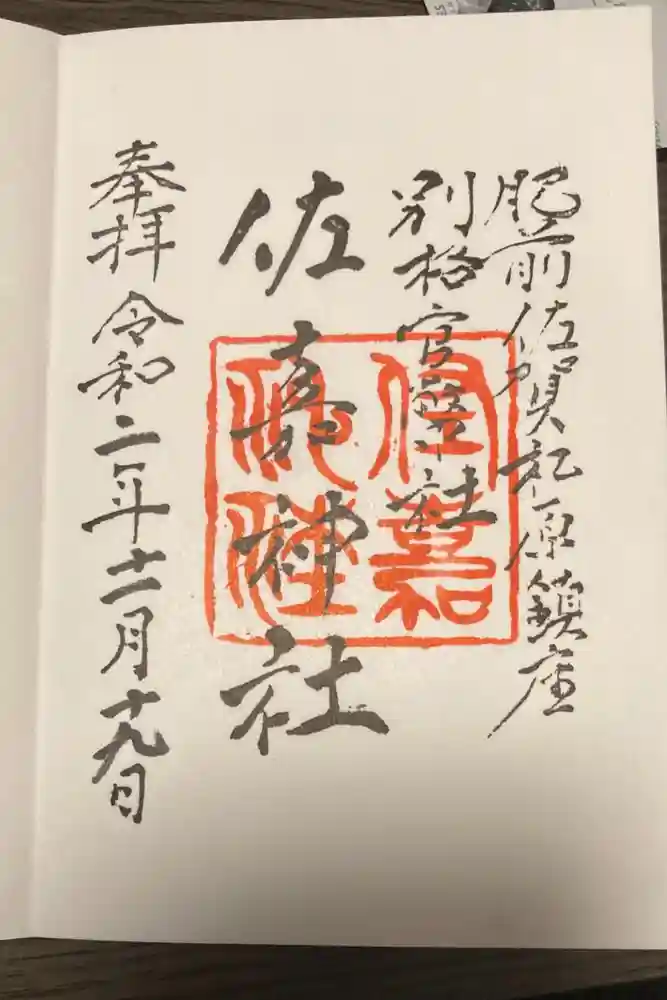 肥前佐賀松原鎮座
別格官幣社
佐嘉神社
佐嘉神社
奉拝 令和二年十一月十九日